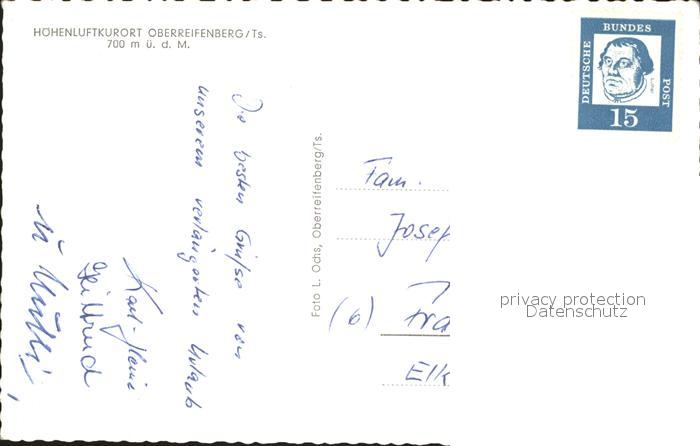 HÖHENLUFTKURORT OBERREIFENBERG/Ts.
700 m ü. d. M.
DEUTSCHE
BUNDES
POST
Luther
15
Die besten Grüße von
unserem verlängerten Urlaub
Karl-Heinz
u. Mutti
Foto L. Ochs, Oberreifenberg/Ts.
Fam.
Josep
(6) Fra
Elk
privacy protection
Datenschutz